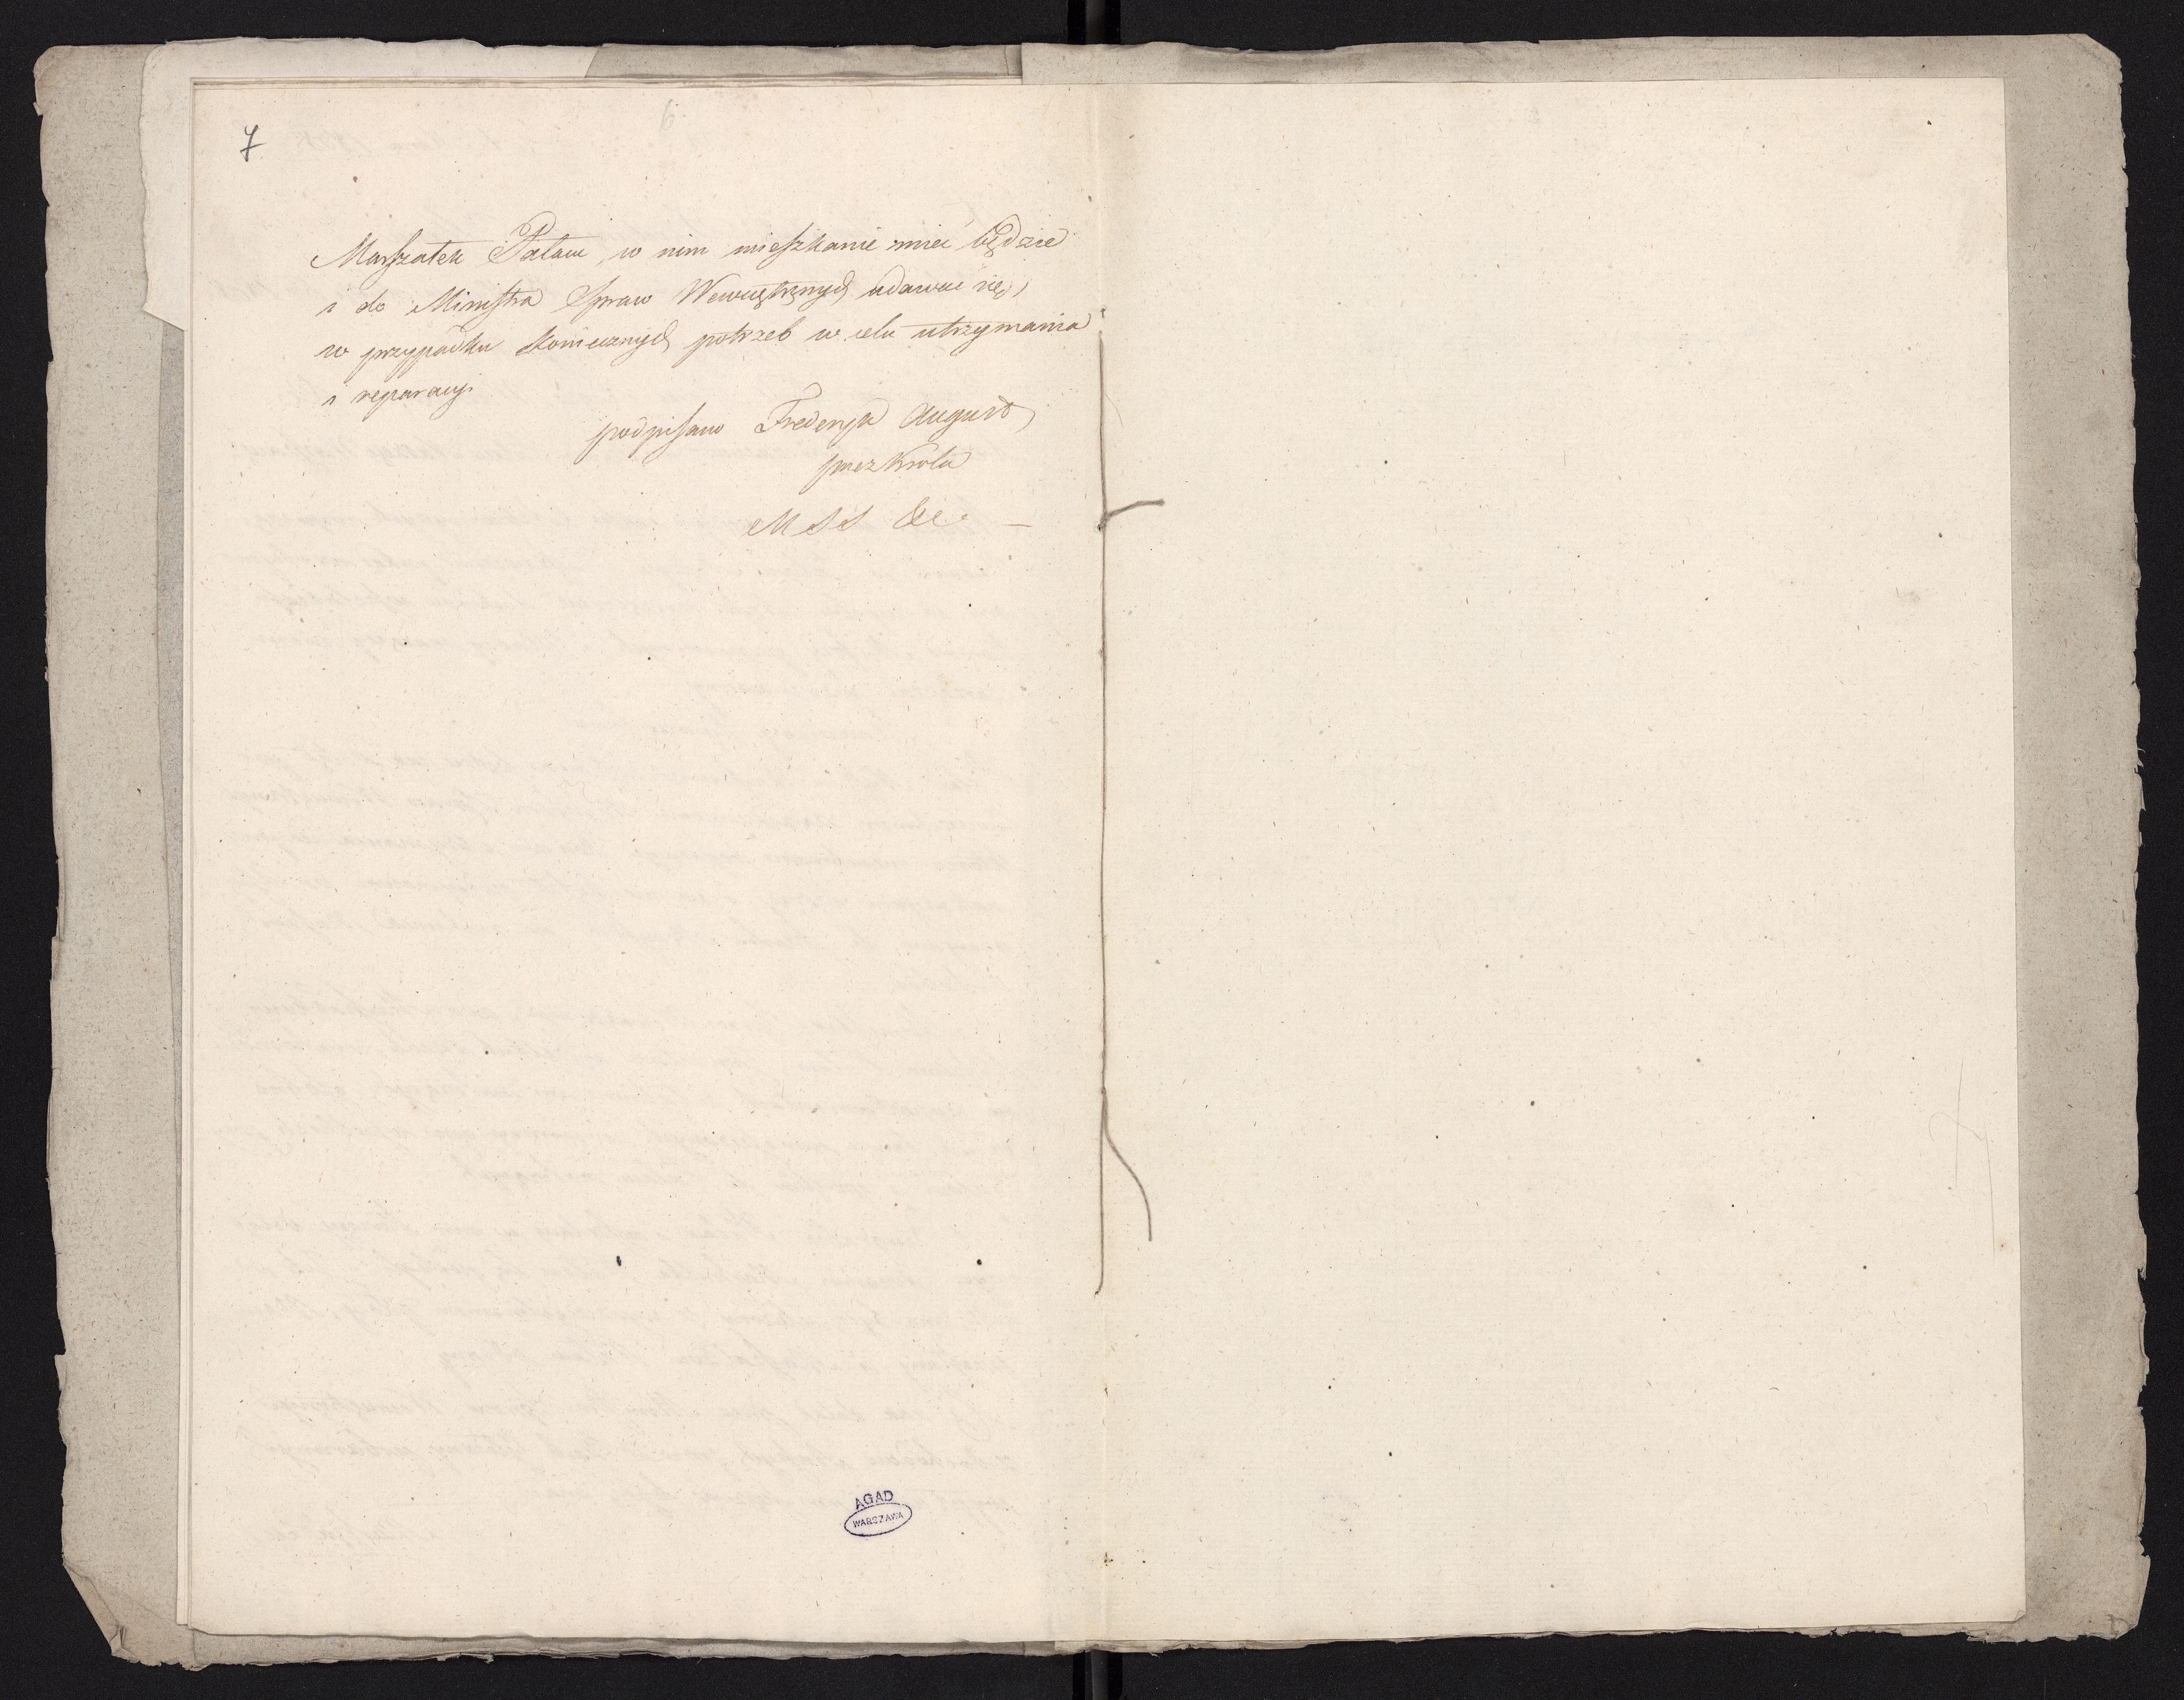 7
6
Marszałek Pałacu, w nim mieszkanie mieć będzie
i do Ministra Spraw Wewnętrznych udawać się,
w przypadku koniecznych potrzeb w celu utrzymania
i reparacyi.
podpisano Frederyk August
przez Króla
M S S &c. —
AGAD
WARSZAWA